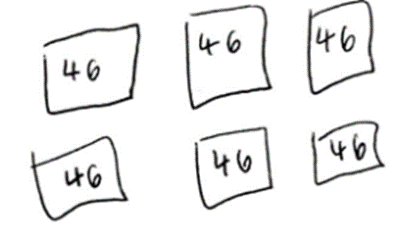 46 46 46
46 46 46